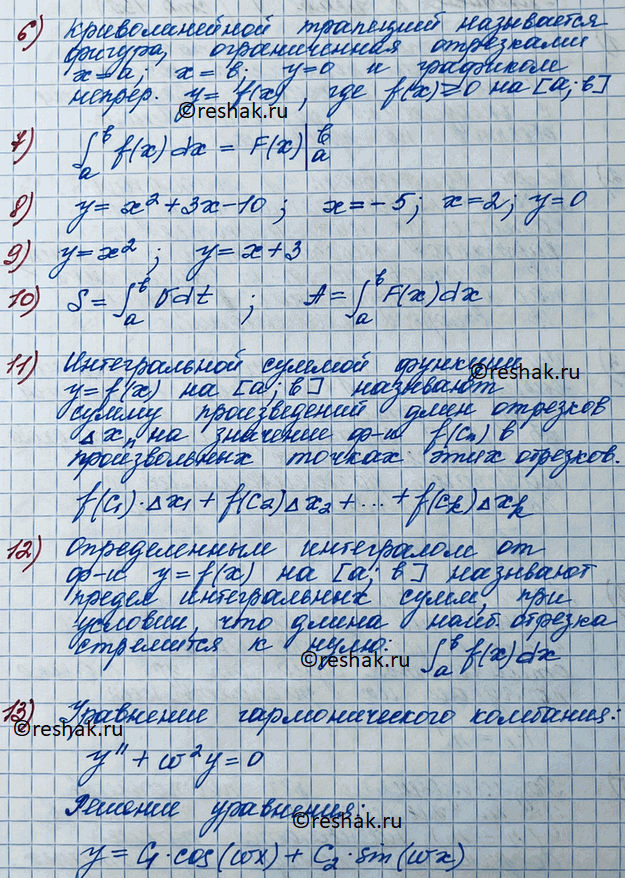 6) Криволинейной трапецией называется
фигура, ограниченная отрезками
x=a, x=в, y=0 и графиком
непрер. y=f(x), где f(x)≥0 на [a;в]
©reshak.ru
7) ∫ₐᵇ f(x)dx = F(x)|ₐᵇ
8) y=x²+3x-10; x=-5; x=2; y=0
9) y=x²; y=x+3
10) S=∫ₐᵇ υdt; A=∫ₐᵇ F(x)dx
11) Интегральной суммой функции
©reshak.ru
y=f(x) на [a;в] называют
сумму произведений длин отрезков
Δxₙ на значение ф-и f(cₙ) в
произвольных точках этих отрезков.
f(c₁)·Δx₁+f(c₂)Δx₂+...+f(cₖ)Δxₖ
12) Определенным интегралом от
ф-и y=f(x) на [a;в] называют
предел интегральных сумм, при
условии, что длина наиб. отрезка
стремится к нулю: ∫ₐᵇ f(x)dx
©reshak.ru
13) Уравнение гармонического колебания:
©reshak.ru
y''+ω²y=0
Решение уравнения:
©reshak.ru
y=C₁·cos(ωx)+C₂·sin(ωx)